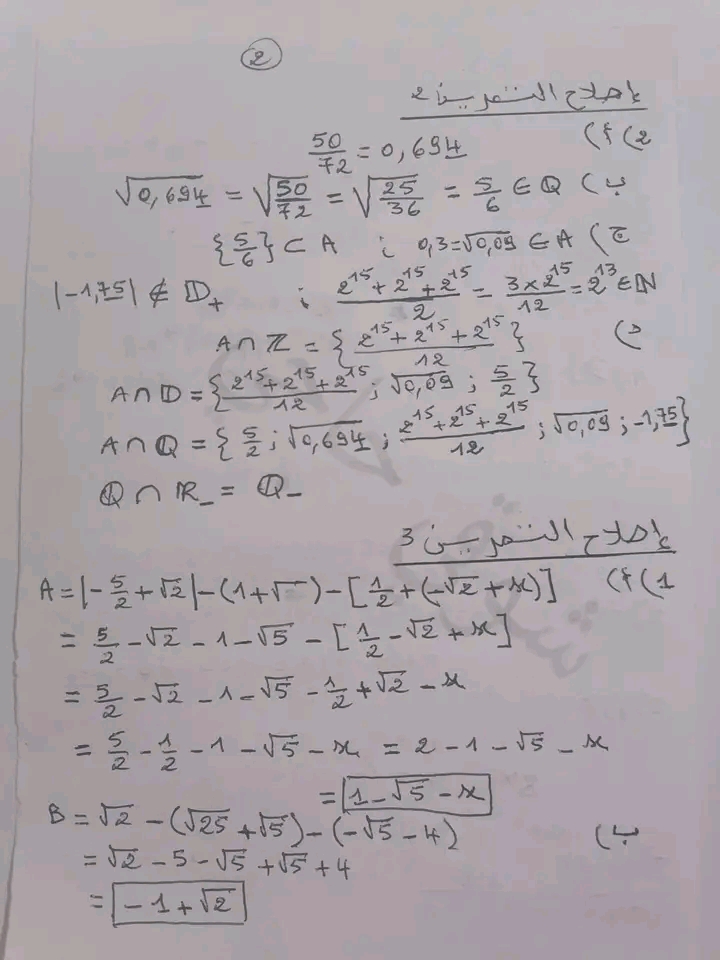 2
إصلاح التمرين 2
2) أ) 50/72 = 0,694̲
ب) √0,694̲ = √(50/72) = √(25/36) = 5/6 ∈ ℚ
ج) 0,3 = √0,09 ∈ A ؛ {5/6} ⊂ A
(2¹⁵ + 2¹⁵ + 2¹⁵)/2 = (3 × 2¹⁵)/12 = 2¹³ ∈ ℕ ؛ |-1,7̲5̲| ∉ 𝔻₊
د) A ∩ ℤ = {(2¹⁵ + 2¹⁵ + 2¹⁵)/12}
A ∩ 𝔻 = {(2¹⁵ + 2¹⁵ + 2¹⁵)/12 ; √0,09 ; 5/2}
A ∩ ℚ = {5/2 ; √0,694̲ ; (2¹⁵ + 2¹⁵ + 2¹⁵)/12 ; √0,09 ; -1,7̲5̲}
ℚ ∩ ℝ₋ = ℚ₋
إصلاح التمرين 3
1) أ) A = |-5/2 + √2| - (1 + √ ) - [1/2 + (-√2 + x)]
= 5/2 - √2 - 1 - √5 - [1/2 - √2 + x]
= 5/2 - √2 - 1 - √5 - 1/2 + √2 - x
= 5/2 - 1/2 - 1 - √5 - x = 2 - 1 - √5 - x
= 1 - √5 - x
ب) B = √2 - (√25 + √5) - (-√5 - 4)
= √2 - 5 - √5 + √5 + 4
= -1 + √2